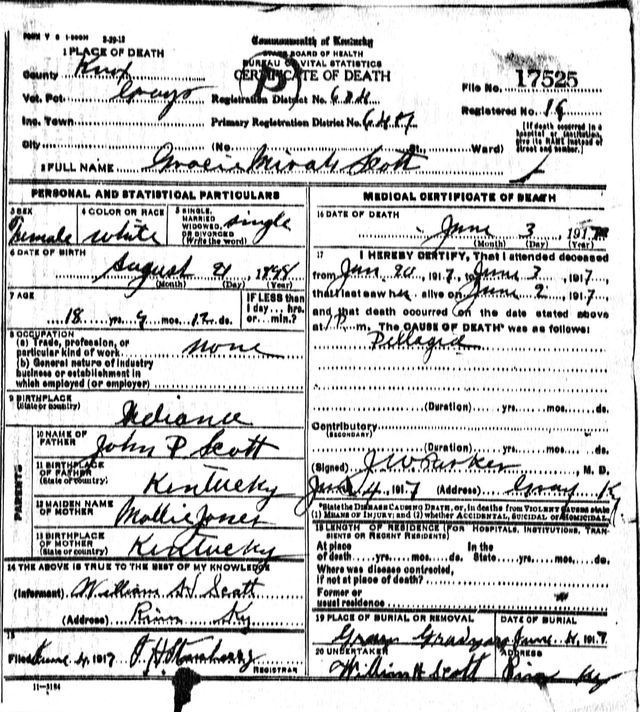 FORM V S 1-500M 3-29-12
Commonwealth of Kentucky
STATE BOARD OF HEALTH
BUREAU OF VITAL STATISTICS
CERTIFICATE OF DEATH
1 PLACE OF DEATH
County Knox
Vot. Pct. Grays
Inc. Town
City (No. St., Ward)
Registration District No. 634
Primary Registration District No.
File No. 17525
Registered No. 19
[If death occurred in a hospital or institution, give its NAME instead of street and number.]
2 FULL NAME Gracie Scott
PERSONAL AND STATISTICAL PARTICULARS
3 SEX Female
4 COLOR OR RACE white
5 SINGLE, MARRIED WIDOWED, OR DIVORCED (Write the word) single
6 DATE OF BIRTH
August 21, 1898
(Month) (Day) (Year)
7 AGE
18 yrs. 9 mos. 12 ds.
IF LESS than 1 day... hrs. or... min.?
8 OCCUPATION
(a) Trade, profession, or particular kind of work none
(b) General nature of industry business or establishment in which employed (or employer)
9 BIRTHPLACE
(State or country)
Indiana
PARENTS
10 NAME OF FATHER John P Scott
11 BIRTHPLACE OF FATHER (State or country) Kentucky
12 MAIDEN NAME OF MOTHER Mollie Jones
13 BIRTHPLACE OF MOTHER (State or country) Kentucky
14 THE ABOVE IS TRUE TO THE BEST OF MY KNOWLEDGE
(Informant) William H Scott
(Address) Ky
15
Filed June 4, 1917
REGISTRAR
11-3184
MEDICAL CERTIFICATE OF DEATH
16 DATE OF DEATH
June 3, 1917
(Month) (Day) (Year)
17 I HEREBY CERTIFY, That I attended deceased
from Jan 20, 1917, to June 3, 1917
that I last saw her alive on June 2, 1917,
and that death occurred on the date stated above
at m. The CAUSE OF DEATH* was as follows:
Pellagra
(Duration) yrs. mos. ds.
Contributory
(SECONDARY)
(Duration) yrs. mos. ds.
(Signed) J.W. Parker M. D.
June 4, 1917 (Address) Gray Ky
*State the DISEASE CAUSING DEATH, or, in deaths from VIOLENT CAUSES state
(1) MEANS OF INJURY; and (2) whether ACCIDENTAL, SUICIDAL or HOMICIDAL.
18 LENGTH OF RESIDENCE (FOR HOSPITALS, INSTITUTIONS, TRANSIENTS OR RECENT RESIDENTS)
At place of death yrs. mos. ds. In the State yrs. mos. ds.
Where was disease contracted,
if not at place of death?
Former or
usual residence
19 PLACE OF BURIAL OR REMOVAL
DATE OF BURIAL
Graveyard June 4, 1917
20 UNDERTAKER
ADDRESS
William H Scott Ky